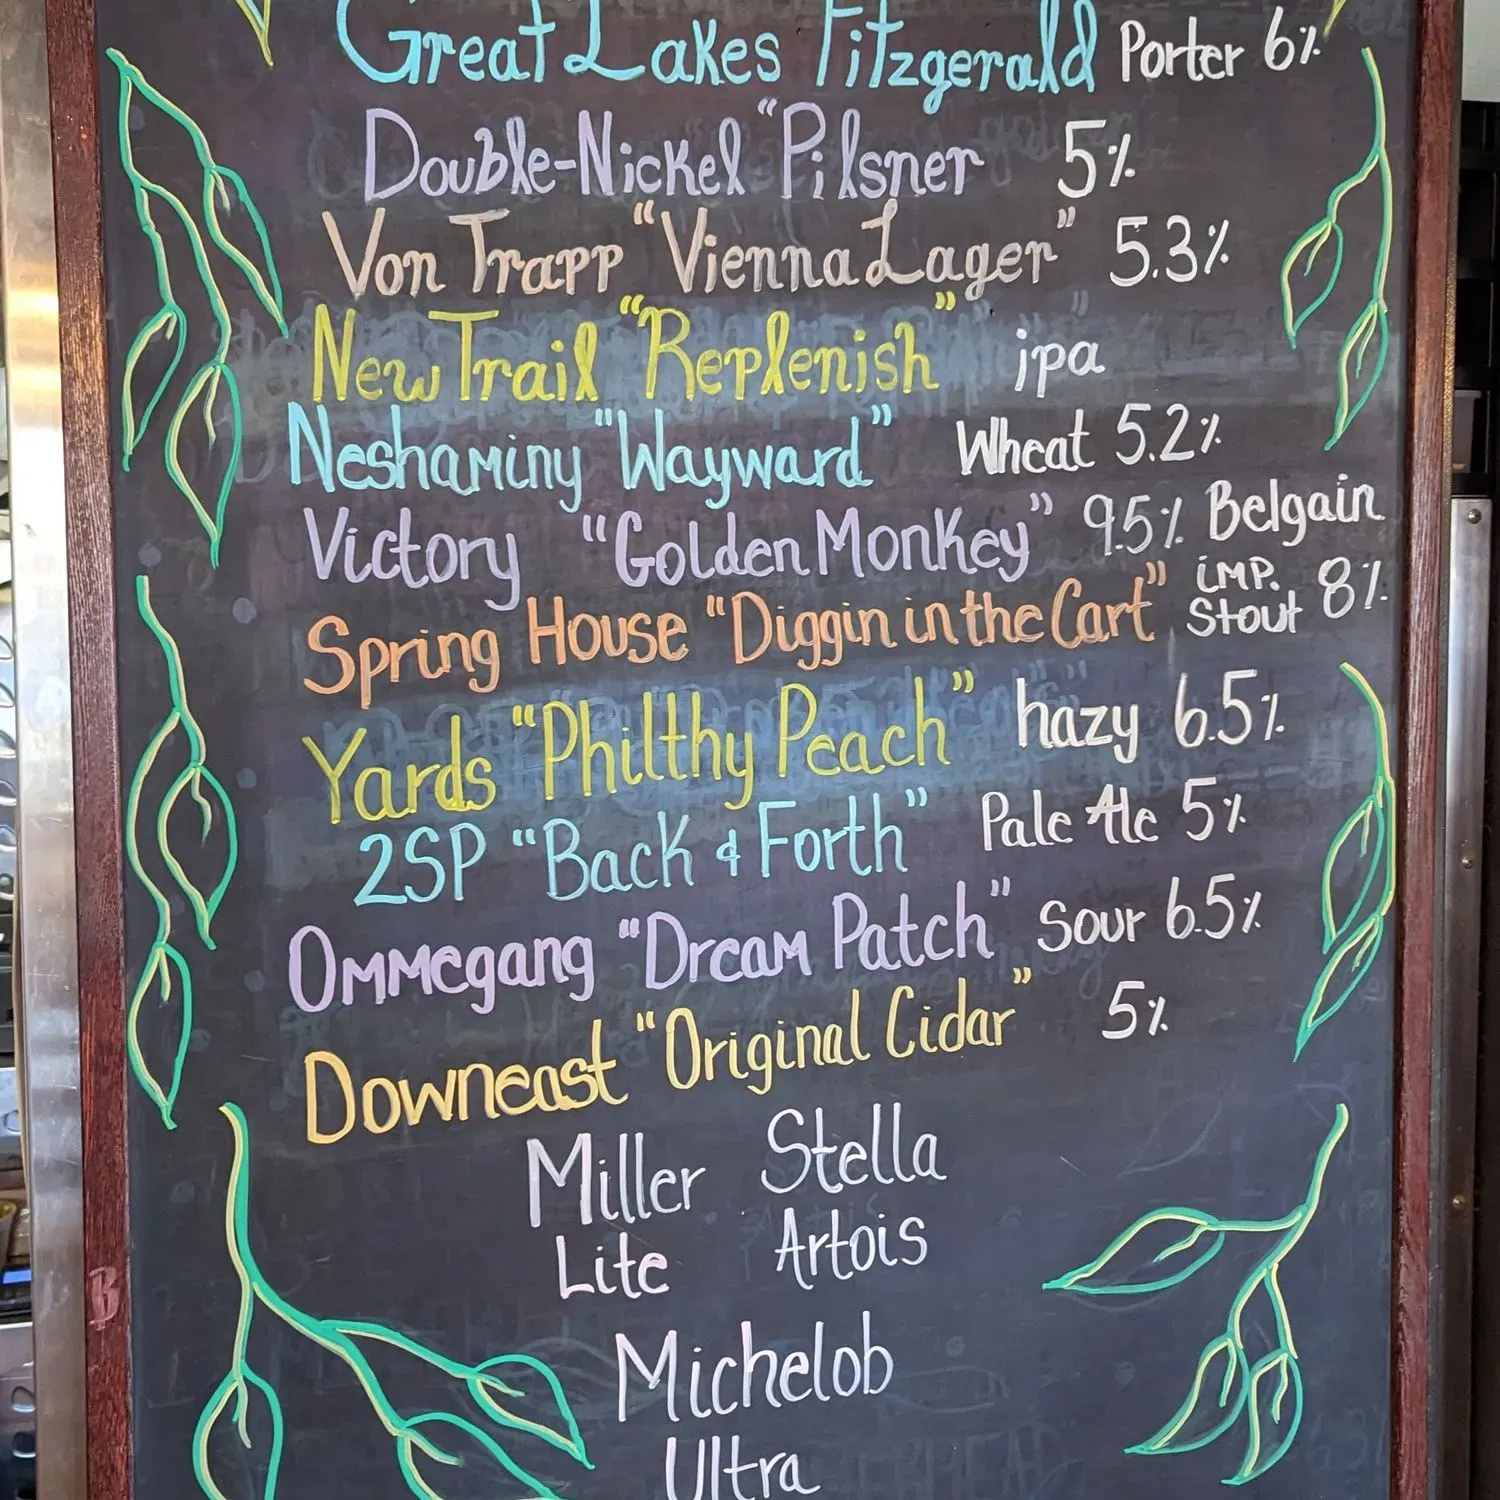 Great Lakes Fitzgerald Porter 6%
Double-Nickel "Pilsner 5%
Von Trapp "Vienna Lager" 5.3%
New Trail "Replenish" ipa
Neshaminy "Wayward" Wheat 5.2%
Victory "Golden Monkey" 9.5% Belgain
Spring House "Diggin in the Cart" imp. Stout 8%
Yards "Philthy Peach" hazy 6.5%
2SP "Back & Forth" Pale Ale 5%
Ommegang "Dream Patch" Sour 6.5%
Downeast "Original Cidar" 5%
Miller Stella
Lite Artois
Michelob
Ultra